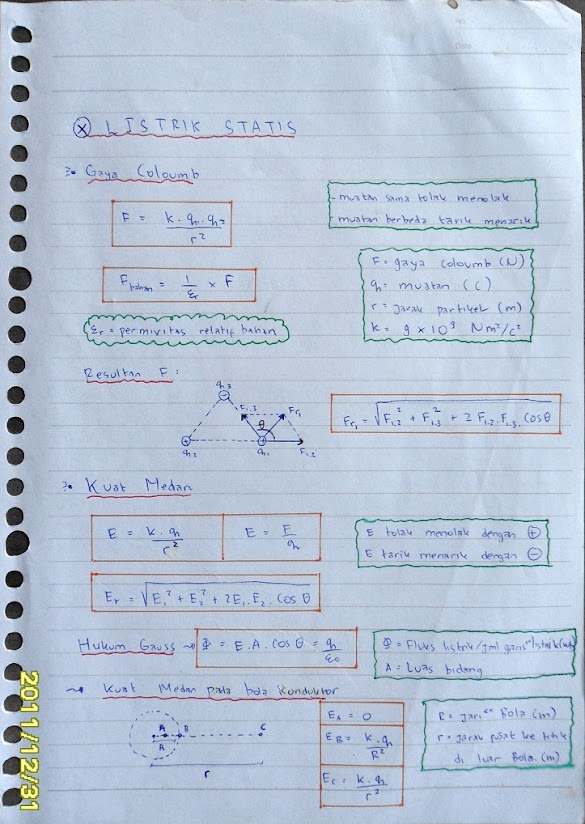 No.
Date
LISTRIK STATIS
Gaya Coloumb
F = k . q1 . q2 / r²
- muatan sama tolak menolak
- muatan berbeda tarik menarik
F bahan = 1/εr × F
F = gaya coloumb (N)
q = muatan (C)
r = jarak partikel (m)
k = 9 × 10⁹ Nm²/c²
εr = permivitas relatif bahan
Resultan F :
q3
F1,3
Fr1
θ
q2
q1
F1,2
Fr1 = √F1,2² + F1,3² + 2 F1,2 . F1,3 . cos θ
Kuat Medan
E = k . q / r²
E = F / q
E tolak menolak dengan ⊕
E tarik menarik dengan ⊖
Er = √E1² + E2² + 2E1 . E2 . cos θ
Hukum Gauss
Φ = E . A . cos θ = q / ε0
Φ = Fluks listrik/jml garis² listrik
A = Luas bidang
Kuat Medan pada bola Konduktor
A
B
C
R
r
EA = 0
EB = k . q / R²
EC = k . q / r²
R = jari²  Bola (m)
r = jarak pusat ke titik
di luar Bola (m)
2011/12/31